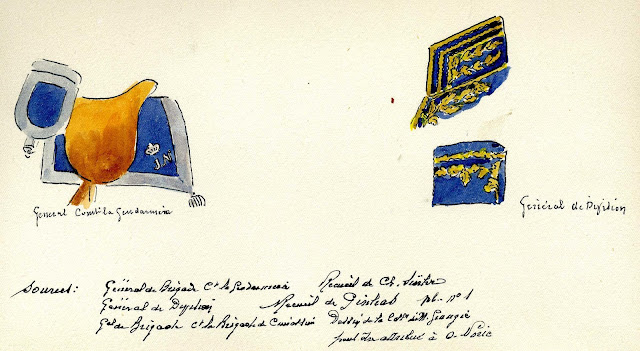 J.N
General Comt la Gendarmerie
Général de Division
Sources: Général de Brigade Ct la Gendarmerie Recueil de Ch.
Général de Division Recueil de pl. no 1
Gal de Brigade Ct la Brigade de Dessin de la Coll. de Mr
peut être attribué à O. Norie